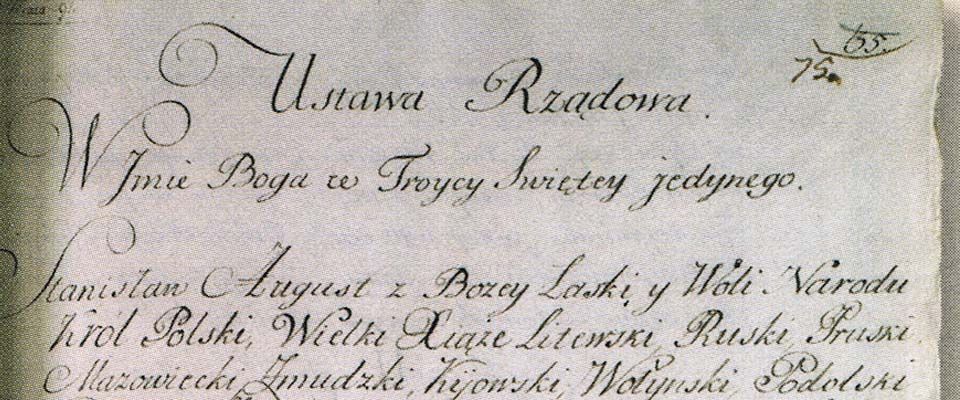 65.
75.
Ustawa Rządowa.
W Jmie Boga w Troycy Swiętey jedynego.
Stanisław August z Bozey Laski, y Woli Narodu
Król Polski, Wielki Xiąże Litewski, Ruski, Pruski,
Mazowiecki, Zmudzki, Kijowski, Wołynski, Podolski